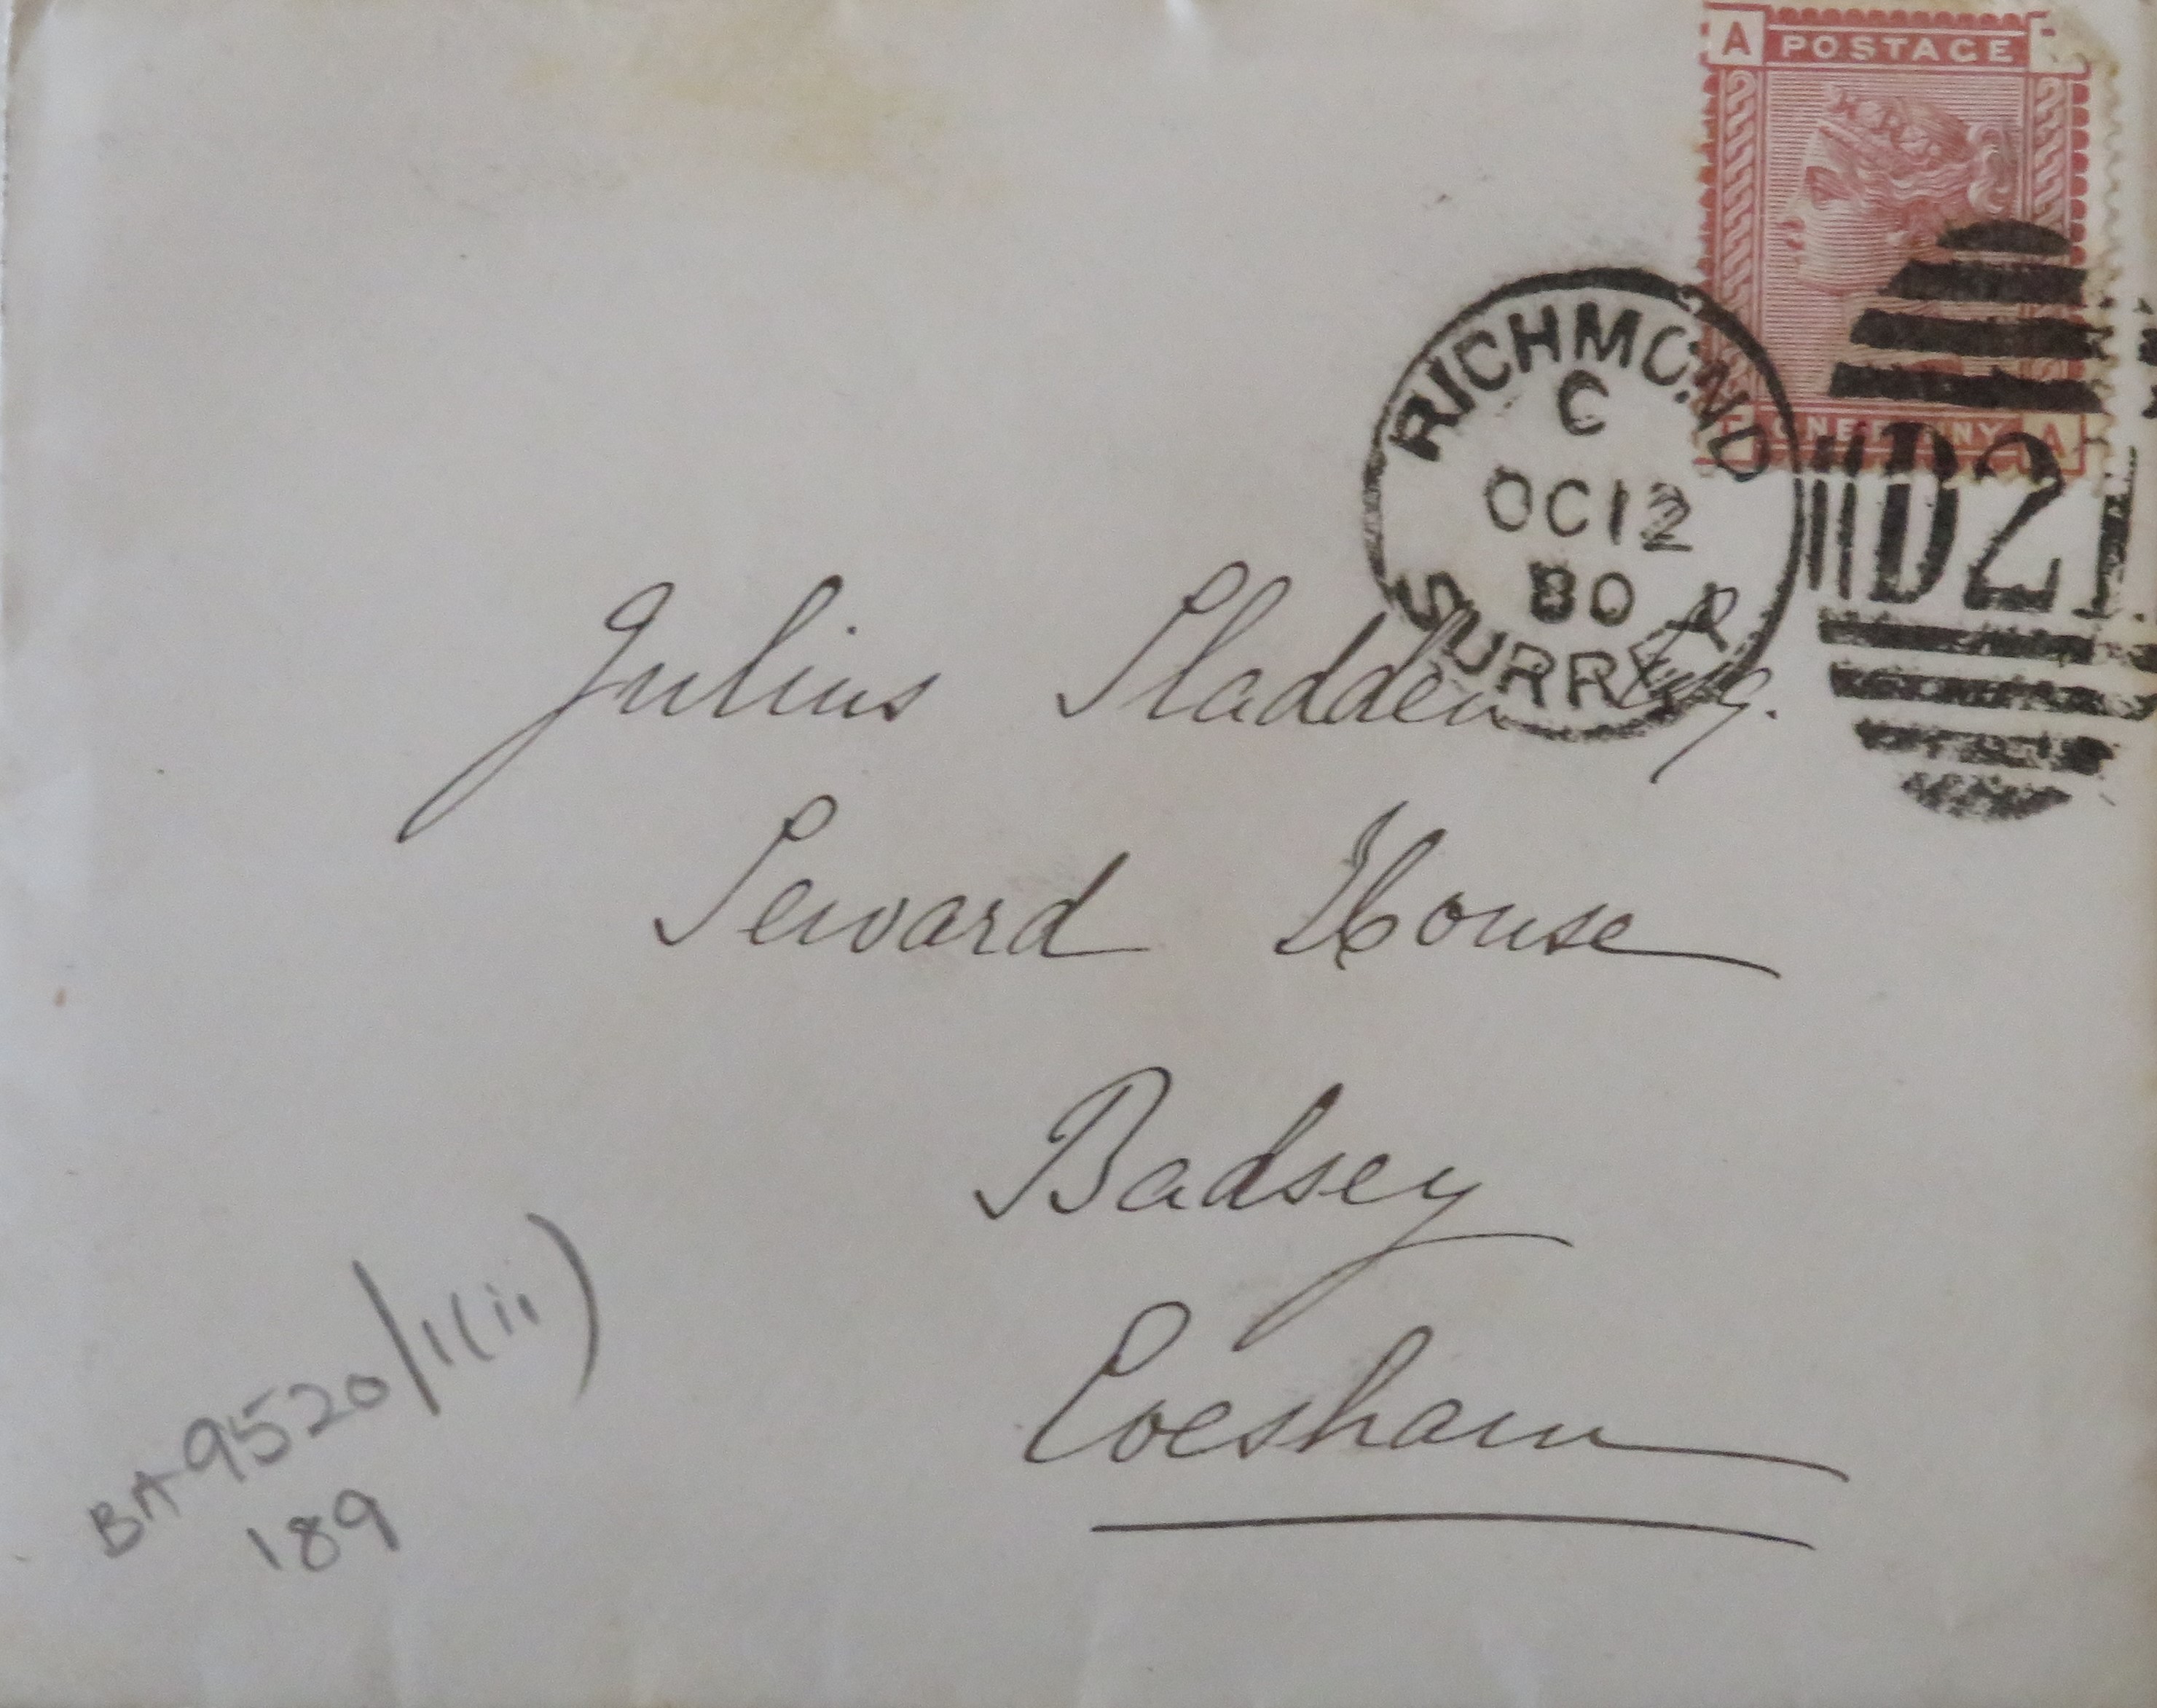 A POSTAGE
RICHMOND
C
OC 12
80
SURREY
ONE PENNY A
D21
Julius Sladden Esq.
Seward House
Badsey
Evesham
BA 9520/1(ii)
189